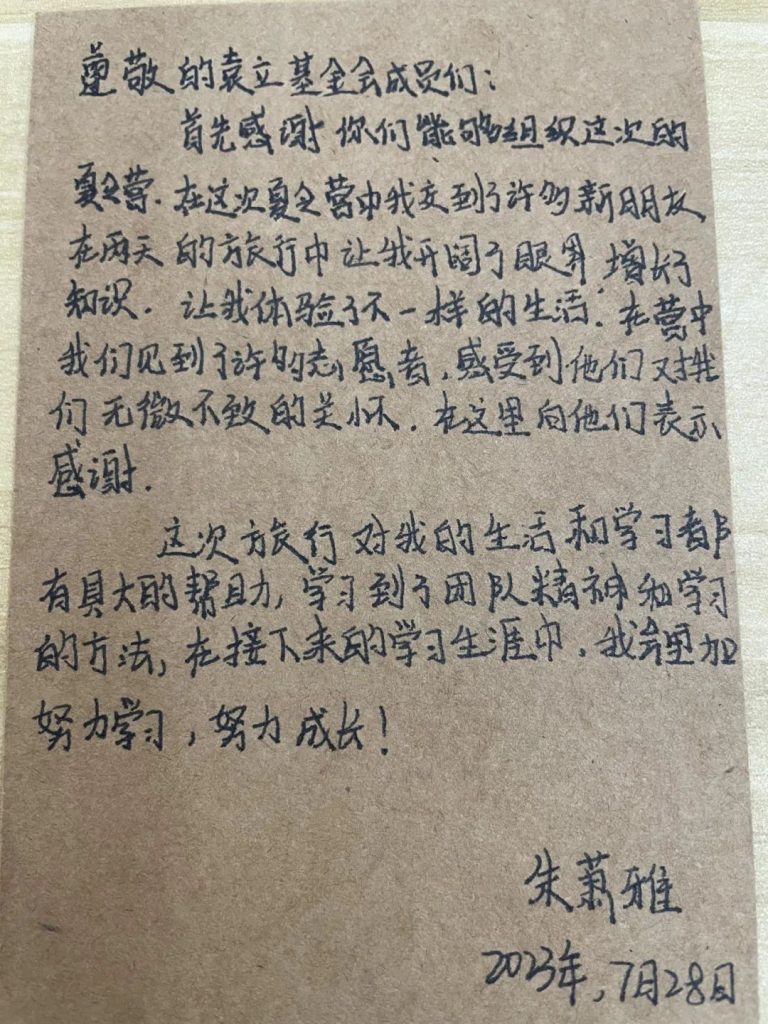 尊敬的袁立基金会成员们:
首先感谢你们能够组织这次的
夏令营.在这次夏令营中我交到了许多新朋友,
在两天的旅行中让我开阔了眼界,增长了
知识.让我体验了不一样的生活.在营中
我们见到了许的志愿者,感受到他们对我
们无微不致的关怀.在这里向他们表示
感谢.
这次旅行对我的生活和学习都
有具大的帮助,学习到了团队精神和学习
的方法,在接下来的学习生涯中,我会更加
努力学习,努力成长!
朱萧雅
2023年,7月28日